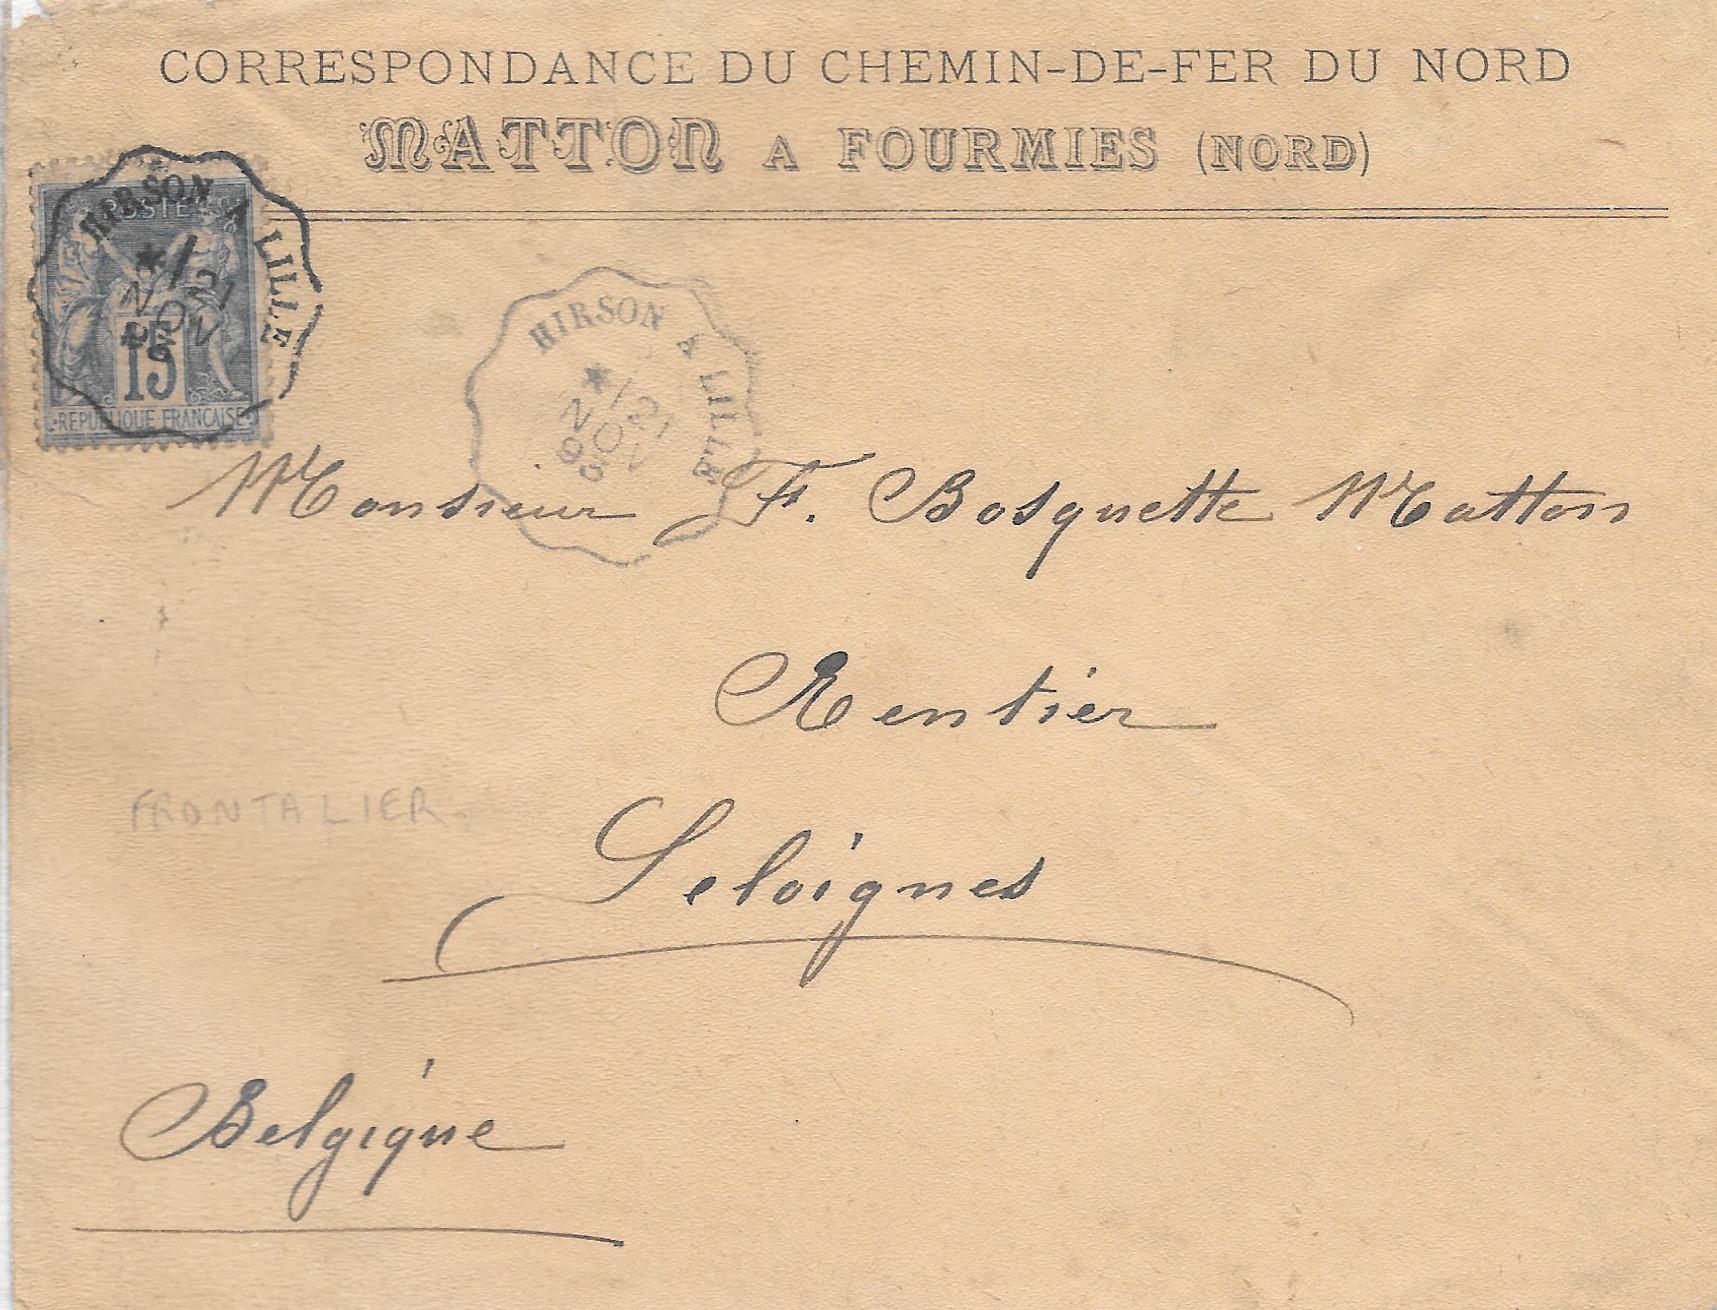 CORRESPONDANCE DU CHEMIN-DE-FER DU NORD
MATTON A FOURMIES (NORD)
POSTE
15
REPUBLIQUE FRANCAISE
HIRSON A LILLE
* / 21
NOV
95
HIRSON A LILLE
* / 21
NOV
95
Monsieur F. Bosquette Matton
Rentier
FRONTALIER.
Seloignes
Belgique